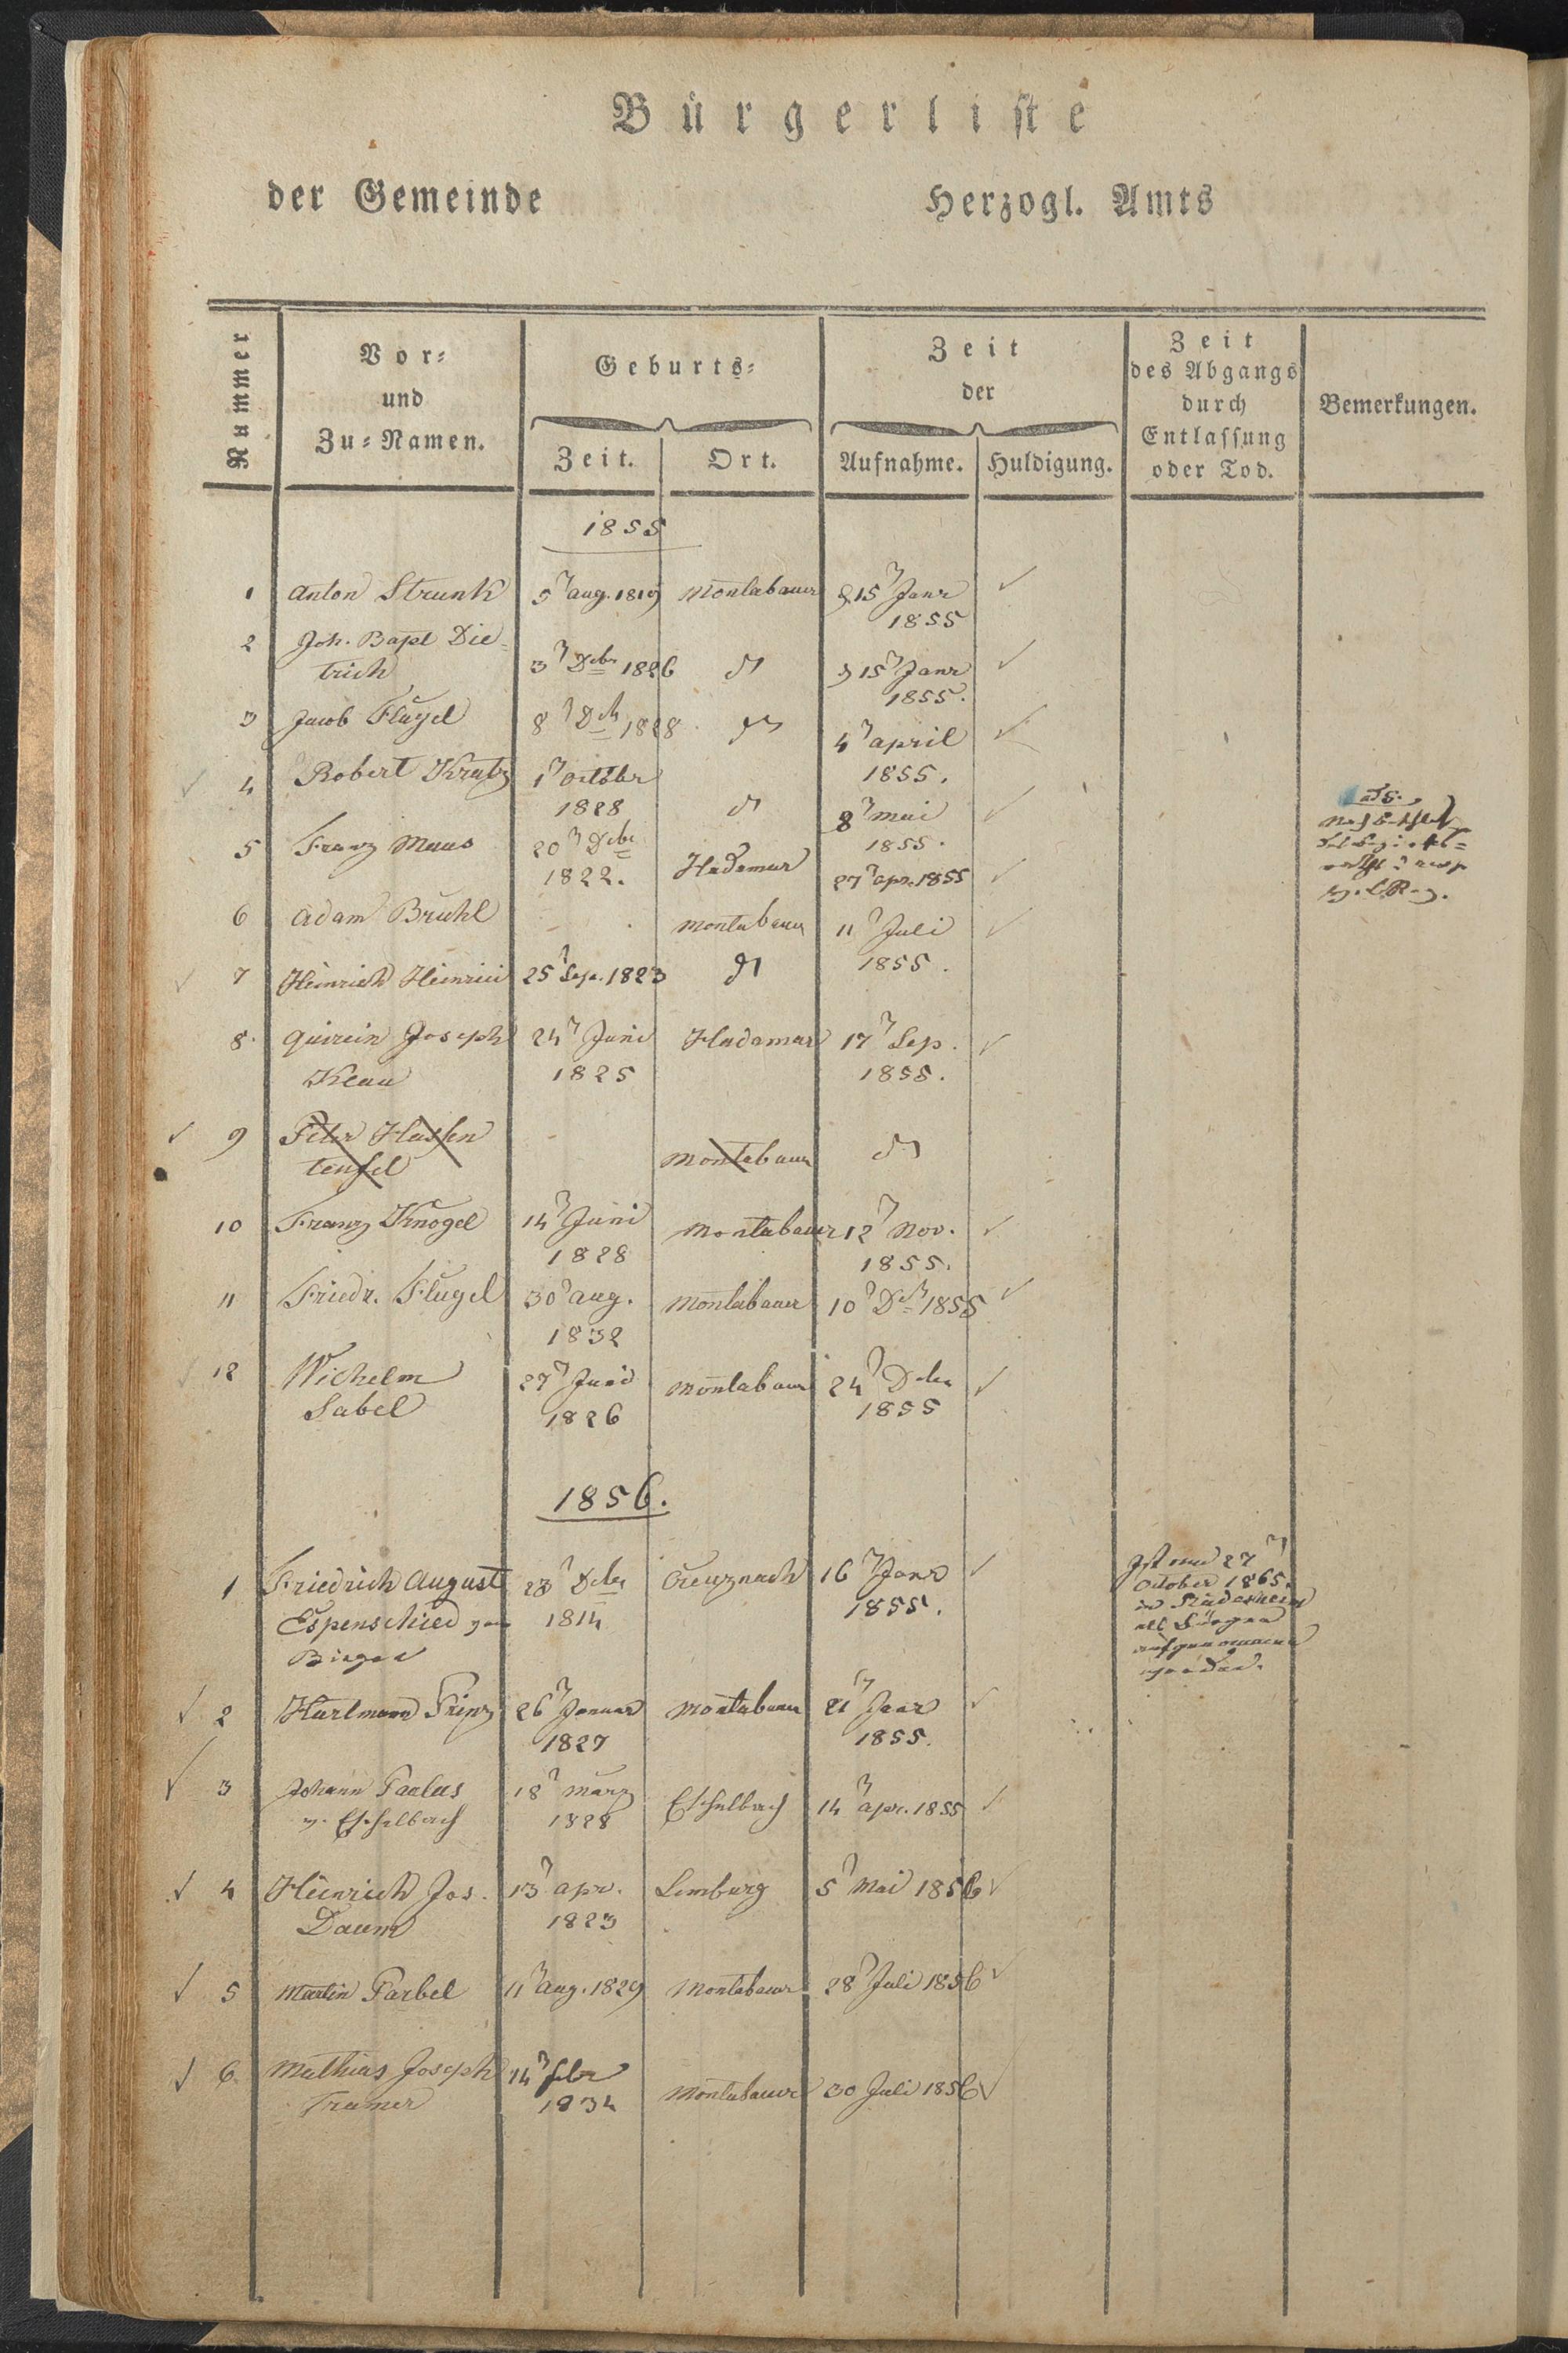 Bürgerliste
der Gemeinde Herzogl. Amts
Nummer
Vor-
und
Zu-Namen.
Geburts-
Zeit. Ort.
Zeit
der
Aufnahme. Huldigung.
Zeit
des Abgangs
durch
Entlassung
oder Tod.
Bemerkungen.
1855
1 Anton Strunk 5 Aug. 1819 Montabaur 15 Janr
1855
2 Joh. Bapt Die-
trich 3 Dcbr 1826 15 Janr
1855.
3 Jacob Flügel 8 1828 4 April
1855.
4 Robert Kratz 1 Octobr
1828 8 Mai
1855.
5 Franz Maas 20 Dcbr
1822. Hadamar 27 Apr. 1855
6 Adam Brühl Montabaur 11 Juli
1855.
7 Heinrich Heinrici 25 Sep. 1823
8. Quirein Joseph 24 Juni Hadamar 17 Sep.
Klau 1825 1855.
9 Peter Hassen
teufel Montabaur
10 Franz Knögel 14 Juni Montabaur 12 Nov.
1828 1855.
11 Friedr. Flügel 30 Aug. Montabaur 10 1855
1832
12 Wilhelm 27 Juni Montabaur 24 Dcbr
Sabel 1826 1855
1856.
1 Friedrich August 28 Dcbr Creuznach 16 Janr
Espenschied von 1814 1855.
Bingen
Ist am 27
October 1865
in Rüdesheim
als Bürger
aufgenommen
worden.
2 Hartmann Prinz 26 Januar Montabaur 21 Janr
1827 1855.
3 Johann Paulus 18 März Eschelbach 14 Apr. 1855
v. Eschelbach 1828
4 Heinrich Jos. 13 Apr. Limburg 5 Mai 1856
Daum 1823
5 Martin Farbel 11 Aug. 1829 Montabaur 28 Juli 1856
6 Mathias Joseph 14 Febr
Tramer 1834 Montabaur 30 Juli 1856